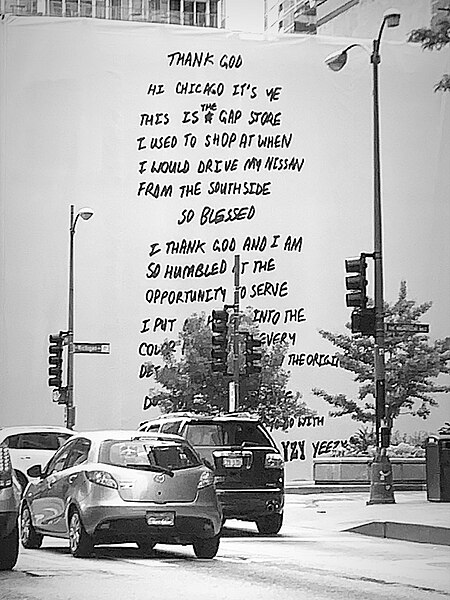 THANK GOD
HI CHICAGO IT'S YE
THIS IS THE GAP STORE
I USED TO SHOP AT WHEN
I WOULD DRIVE MY NISSAN
FROM THE SOUTHSIDE
SO BLESSED
I THANK GOD AND I AM
SO HUMBLED AT THE
OPPORTUNITY TO SERVE
I PUT INTO THE
EVERY
THE ORIGIN
DO WITH
YZY YEEZY